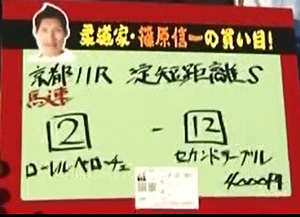 柔道家・篠原信一の買い目！
京都11R 淀短距離S
馬連
2 - 12
ローレルベローチェ セカンドテーブル
4000円